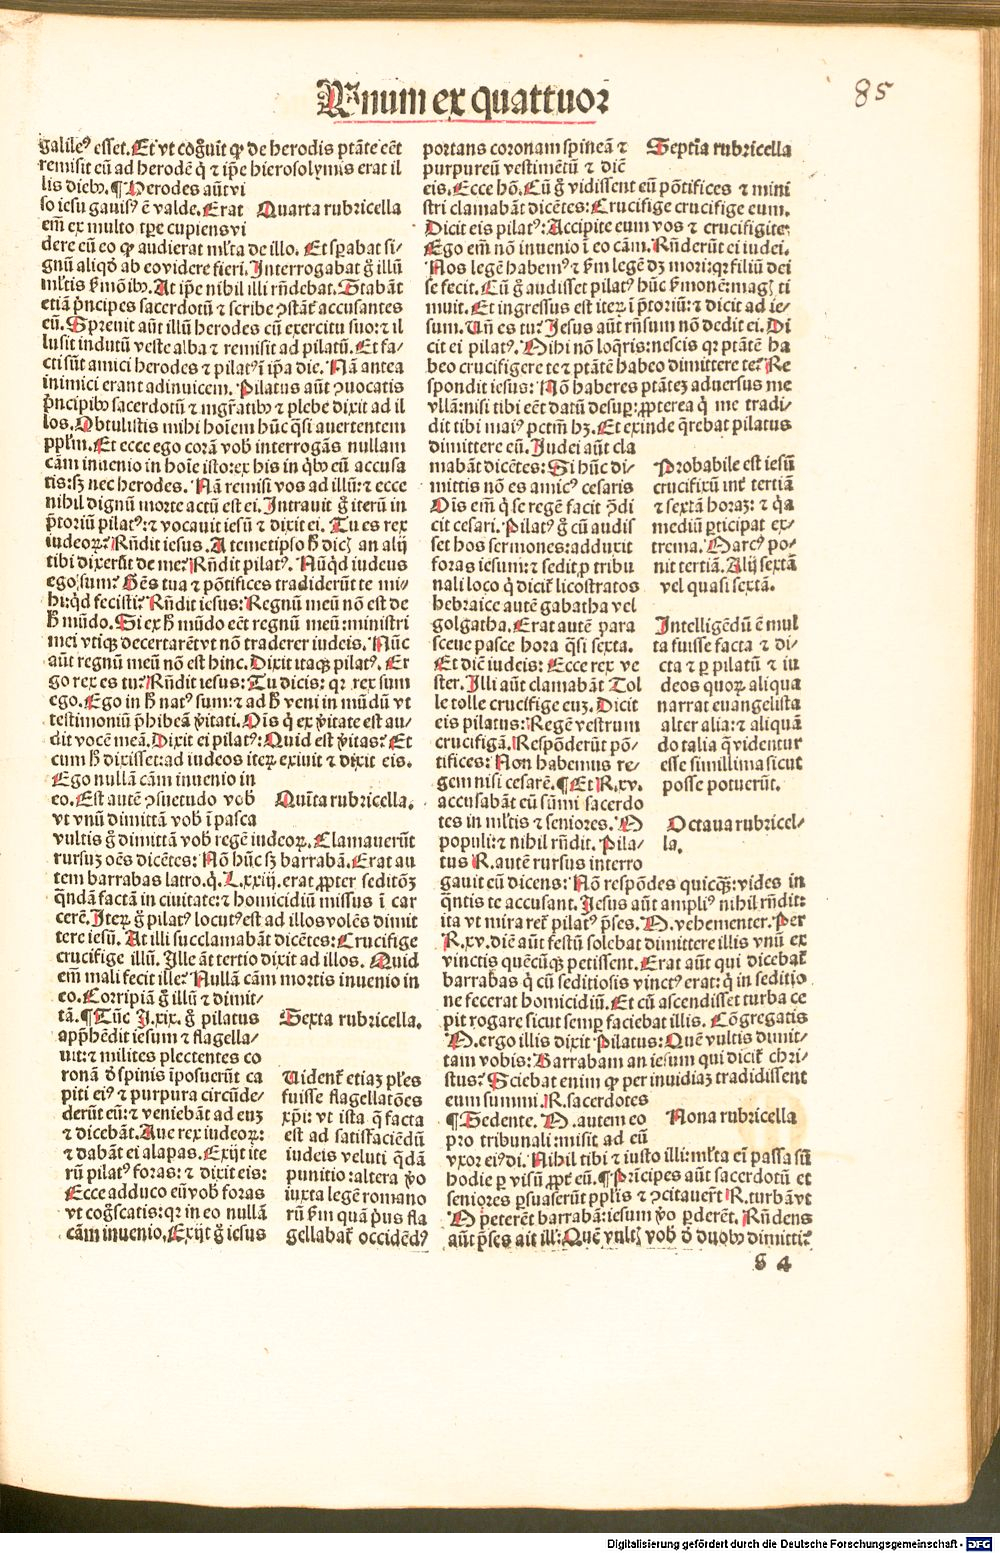 Unum ex quattuor
85
galileꝰ esset. Et vt cōgͦuit qꝙ de herodis ptāte eēt
remisit eū ad herodē q̇ ⁊ ip̄e hierosolymis erat il
lis dieb. ¶ Herodes aūt vi
so iesu gauisꝰ ē valde. Erat
em̄ ex multo tp̄e cupiens vi
Quarta rubricella
dere eū eo qꝙ audierat ml̄ta de illo. Et sꝑabat si-
gnū aliqd ab eo videre fieri. Interrogabat g̊ illū
ml̄tis ẜmōib. At ip̄e nihil illi rn̄debat. Stabāt
etiā pͥncipes sacerdotū ⁊ scribe ꝯstāt̄ accusantes
eū. Spreuit aūt illū herodes cū exercitu suo: ⁊ il
lusit indutū veste alba ⁊ remisit ad pilatū. Et fa-
cti sūt amici herodes ⁊ pilatꝰ ī ip̄a die. Nā antea
inimici erant adinuicem. Pilatus aūt ꝯuocatis
pͥncipib sacerdotū ⁊ mgr̄atib ⁊ plebe dixit ad il
los. Obtulistis mihi hoīem hūc q̄si auertentem
pplm̄. Et ecce ego corā vob interrogās nullam
cām inuenio in hoīe isto: ex his in qb eū accusa
tis: sꝫ nec herodes. Nā remisi vos ad illū: ⁊ ecce
nihil dignū morte actū est ei. Intrauit g̊ iterū in
p̄toriū pilatꝰ: ⁊ vocauit iesū ⁊ dixit ei. Tu es rex
iudeoꝝ? Rn̄dit iesus. A temetipso h̄ dic̄ an alij
tibi dixerūt de me? Rn̄dit pilatꝰ. Nūqd iudeus
ego sum? Gēs tua ⁊ pōtifices tradiderūt te mi-
hi: qd fecisti? Rn̄dit iesus: Regnū meū nō est de
h̄ mūdo. Si ex h̄ mūdo eēt regnū meū: ministri
mei vtiqꝫ decertarēt vt nō traderer iudeis. Nūc
aūt regnū meū nō est hinc. Dixit itaqꝫ pilatꝰ. Er
go rex es tu? Rn̄dit iesus: Tu dicis: qꝛ rex sum
ego. Ego in h̄ natꝰ sum: ⁊ ad h̄ veni in mūdū vt
testimoniū ꝑhibeā v̓itati. Oīs q̇ ex v̓itate est au-
dit vocē meā. Dixit ei pilatꝰ: Quid est v̓itas? Et
cum h̄ dixisset: ad iudeos iteꝝ exiuit ⁊ dixit eis.
Ego nullā cām inuenio in
eo. Est autē ꝯsuetudo vob
vt vnū dimittā vob ī pasca
Quīta rubricella.
vultis g̊ dimittā vob regē iudeoꝝ. Clamauerūt
rursuꝫ oēs dicētes: Nō hūc sꝫ barrabā. Erat au
tem barrabas latro. q̇. L. xxiij. erat ꝓpter seditōꝫ
q̄ndā factā in ciuitate: ⁊ homicidiū missus ī car
cerē. Iteꝝ g̊ pilatꝰ locutꝰ est ad illos volēs dimit
tere iesū. At illi succlamabāt dicētes: Crucifige
crucifige illū. Ille āt tertio dixit ad illos. Quid
em̄ mali fecit ille? Nullā cām mortis inuenio in
eo. Corripiā g̊ illū ⁊ dimit-
tā. ¶ Tūc J. xix. g̊ pilatus
apprhēdit iesum ⁊ flagella-
uit: ⁊ milites plectentes co
ronā d̓ spinis īposuerūt ca
piti eiꝰ ⁊ purpura circūde-
derūt eū: ⁊ veniebāt ad euꝫ
⁊ dicebāt. Aue rex iudeoꝝ:
⁊ dabāt ei alapas. Exijt ite
rū pilatꝰ foras: ⁊ dixit eis:
Ecce adduco eū vob foras
vt cog̊scatis: qꝛ in eo nullā
cām inuenio. Exijt g̊ iesus
Sexta rubricella.
Uident̄ etiaꝫ pl̄es
fuisse flagellatōes
xp̄i: vt ista q̄ facta
est ad satisfaciēdū
iudeis veluti q̄dā
punitio: altera v̓o
iuxta legē romano
rū ẜm quā pͥus fla
gellabat̄ occidēdꝰ
portans coronam spineā ⁊
purpureū vestimētū ⁊ diē
Septīa rubricella
eis. Ecce hō. Cū g̊ vidissent eū pōtifices ⁊ mini
stri clamabāt dicētes: Crucifige crucifige eum.
Dicit eis pilatꝰ: Accipite eum vos ⁊ crucifigite
Ego em̄ nō inuenio ī eo cām. Rn̄derūt ei iudei.
Nos legē habemꝰ ⁊ ẜm legē dꝫ mori: qꝛ filiū dei
se fecit. Cū g̊ audisset pilatꝰ hūc ẜmonē: magꝫ ti
muit. Et ingressus est iteꝝ ī p̄toriū: ⁊ dicit ad ie-
sum. Un̄ es tu? Jesus aūt rn̄sum nō dedit ei. Di
cit ei pilatꝰ. Mihi nō loq̄ris: nescis qꝛ ptātē ha
beo crucifigere te ⁊ ptātē habeo dimittere te? Re
spondit iesus: Nō haberes ptāteꝫ aduersus me
vllā: nisi tibi eēt datū desuꝑ: ꝓpterea q̇ me tradi-
dit tibi maiꝰ pctm̄ hꝫ. Et exinde q̄rebat pilatus
dimittere eū. Judei aūt cla
mabāt dicētes: Si hūc di-
mittis nō es amicꝰ cesaris
Oīs em̄ q̇ se regē facit ꝯ̄di
cit cesari. Pilatꝰ g̊ cū audis
set hos sermones: adduxit
foras iesum: ⁊ sedit ꝓ tribu
nali loco q̇ dicit̄ licostratos
hebraice autē gabatha vel
golgatha. Erat autē para
sceue pasce hora q̄si sexta.
Et diē iudeis: Ecce rex ve
ster. Illi aūt clamabāt Tol
le tolle crucifige euꝫ. Dicit
eis pilatus: Regē vestrum
crucifigā. Respōderūt pō-
tifices: Non habemus re-
gem nisi cesarē. ¶ Et R. xv.
accusabāt eū sūmi sacerdo
tes in ml̄tis ⁊ seniores. M
populi: ⁊ nihil rn̄dit. Pila-
tus R. autē rursus interro
Probabile est iesū
crucifixū int̓ tertiā
⁊ sextā horaꝫ: ⁊ q̇a
mediū ꝑticipat ex-
trema. Marcꝰ po-
nit tertiā. Alij sextā
vel quasi sexta.
Intelligēdū ē mul
ta fuisse facta ⁊ di-
cta ⁊ ꝑ pilatū ⁊ iu
deos quoꝝ aliqua
narrat euangelista
alter alia: ⁊ aliquā
do talia q̄ videntur
esse simillima sicut
posse potuerūt.
Octaua rubricel-
la.
gauit eū dicens: Nō respōdes quicqꝫ: vides in
q̄ntis te accusant. Jesus aūt ampliꝰ nihil rn̄dit:
ita vt miraret̄ pilatꝰ p̄ses. M. vehementer. Per
R. xv. diē aūt festū solebat dimittere illis vnū ex
vinctis quēcūqꝫ petissent. Erat aūt qui dicebat̄
barrabas q̇ cū seditiosis vinctꝰ erat: q̇ in seditio
ne fecerat homicidiū. Et cū ascendisset turba ce
pit rogare sicut semꝑ faciebat illis. Cōgregatis
M. ergo illis dixit Pilatus: Quē vultis dimit-
tam vobis: Barrabam an iesum qui dicit̄ chri-
stus? Sciebat enim qꝙ per inuidiaꝫ tradidissent
eum summi. R. sacerdotes
¶ Sedente. M. autem eo
pro tribunali: misit ad eū
Nona rubricella
vxor eiꝰ di. Nihil tibi ⁊ iusto illi: ml̄ta em̄ passa sū
hodie ꝑ visū ꝓpt̓ eū. ¶ Pͥncipes aūt sacerdotū et
seniores ꝑsuaserūt ppl̄is ⁊ ꝯcitauer̄t R. turbā vt
M peterēt barrabā: iesum v̓o ꝑderēt. Rn̄dens
aūt p̄ses ait ill̓: Quē vultꝫ vob d̓ duob dimitti?
S 4
Digitalisierung gefördert durch die Deutsche Forschungsgemeinschaft - DFG